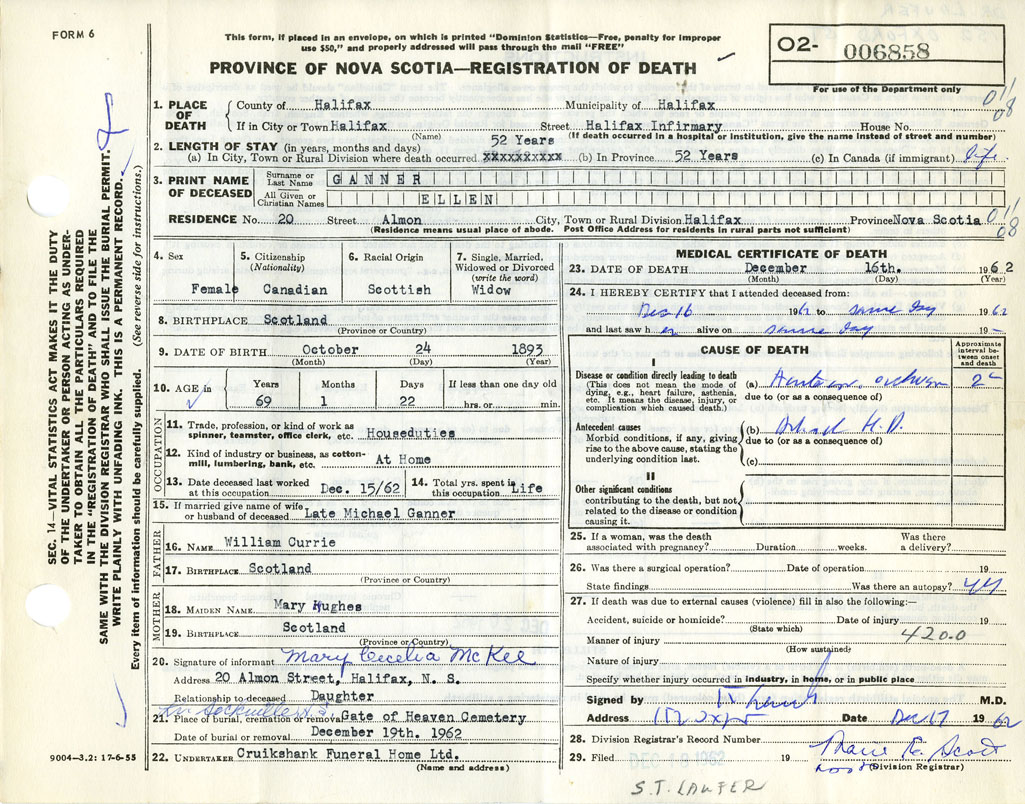 FORM 6
This form, if placed in an envelope, on which is printed "Dominion Statistics—Free, penalty for improper
use $50," and properly addressed will pass through the mail "FREE"
PROVINCE OF NOVA SCOTIA—REGISTRATION OF DEATH
02- 006858
For use of the Department only
011
08
1. PLACE OF DEATH { County of Halifax Municipality of Halifax
If in City or Town Halifax Street Halifax Infirmary House No.
(Name) (If death occurred in a hospital or institution, give the name instead of street and number)
2. LENGTH OF STAY (in years, months and days) 52 Years
(a) In City, Town or Rural Division where death occurred xxxxxxxxxx (b) In Province 52 Years (c) In Canada (if immigrant) life
3. PRINT NAME OF DECEASED
Surname or Last Name GANNER
All Given or Christian Names ELLEN
RESIDENCE No. 20 Street Almon City, Town or Rural Division Halifax Province Nova Scotia 011
08
(Residence means usual place of abode. Post Office Address for residents in rural parts not sufficient)
4. Sex 5. Citizenship (Nationality) 6. Racial Origin 7. Single, Married, Widowed or Divorced (write the word)
Female Canadian Scottish Widow
8. BIRTHPLACE Scotland
(Province or Country)
9. DATE OF BIRTH October 24 1893
(Month) (Day) (Year)
10. AGE in Years Months Days If less than one day old
69 1 22 hrs. or min.
OCCUPATION
11. Trade, profession, or kind of work as
spinner, teamster, office clerk, etc. Houseduties
12. Kind of industry or business, as cotton-
mill, lumbering, bank, etc. At Home
13. Date deceased last worked at this occupation Dec. 15/62 14. Total yrs. spent in this occupation Life
15. If married give name of wife
or husband of deceased Late Michael Ganner
FATHER
16. NAME William Currie
17. BIRTHPLACE Scotland
(Province or Country)
MOTHER
18. MAIDEN NAME Mary Hughes
19. BIRTHPLACE Scotland
(Province or Country)
20. Signature of informant Mary Cecelia McKee
Address 20 Almon Street, Halifax, N. S.
Relationship to deceased Daughter
Lr. Sackville N.S.
21. Place of burial, cremation or removal Gate of Heaven Cemetery
Date of burial or removal December 19th. 1962
22. UNDERTAKER Cruikshank Funeral Home Ltd.
(Name and address)
MEDICAL CERTIFICATE OF DEATH
23. DATE OF DEATH December 16th. 1962
(Month) (Day) (Year)
24. I HEREBY CERTIFY that I attended deceased from:
Dec 16 1962 to same day 1962
and last saw h er alive on same day 19
CAUSE OF DEATH
Approximate interval between onset and death
I
Disease or condition directly leading to death
(This does not mean the mode of
dying, e.g., heart failure, asthenia,
etc. It means the disease, injury, or
complication which caused death.)
(a)
due to (or as a consequence of)
Antecedent causes
Morbid conditions, if any, giving
rise to the above cause, stating the
underlying condition last.
(b) H.D.
due to (or as a consequence of)
(c)
II
Other significant conditions
contributing to the death, but not
related to the disease or condition
causing it.
25. If a woman, was the death Was there
associated with pregnancy? Duration weeks. a delivery?
26. Was there a surgical operation? Date of operation 19
State findings Was there an autopsy?
27. If death was due to external causes (violence) fill in also the following:—
Accident, suicide or homicide? Date of injury 19
(State which)
Manner of injury 420.0
(How sustained)
Nature of injury
Specify whether injury occurred in industry, in home, or in public place
Signed by M.D.
Address Date Dec 17 1962
28. Division Registrar's Record Number
29. Filed DEC 18 1962 19 Marie E. Scott
(Division Registrar)
S.T. LAUFER
SEC. 14—VITAL STATISTICS ACT MAKES IT THE DUTY
OF THE UNDERTAKER OR PERSON ACTING AS UNDER-
TAKER TO OBTAIN ALL THE PARTICULARS REQUIRED
IN THE "REGISTRATION OF DEATH" AND TO FILE THE
SAME WITH THE DIVISION REGISTRAR WHO SHALL ISSUE THE BURIAL PERMIT.
WRITE PLAINLY WITH UNFADING INK. THIS IS A PERMANENT RECORD.
Every item of information should be carefully supplied. (See reverse side for instructions.)
9004—3,2: 17-6-55